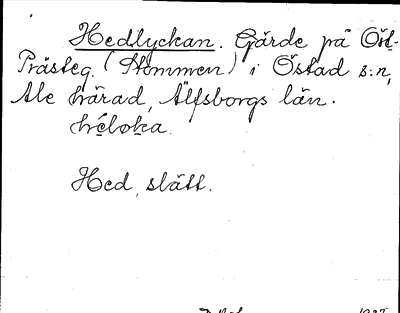 Hedlyckan. Gärde på Öst-
Prästeg. (Stommen) i Östad s:n,
Ale härad, Älfsborgs län.
héloka.
Hed, slätt.